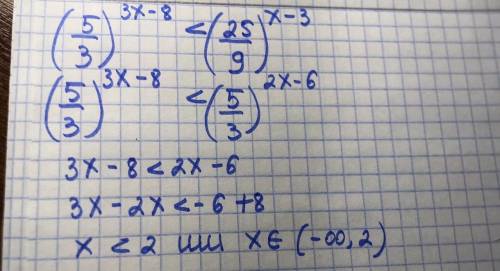 (5/3)^(3x-8) < (25/9)^(x-3)
(5/3)^(3x-8) < (5/3)^(2x-6)
3x-8<2x-6
3x-2x<-6+8
x < 2 или x∈(-∞,2)